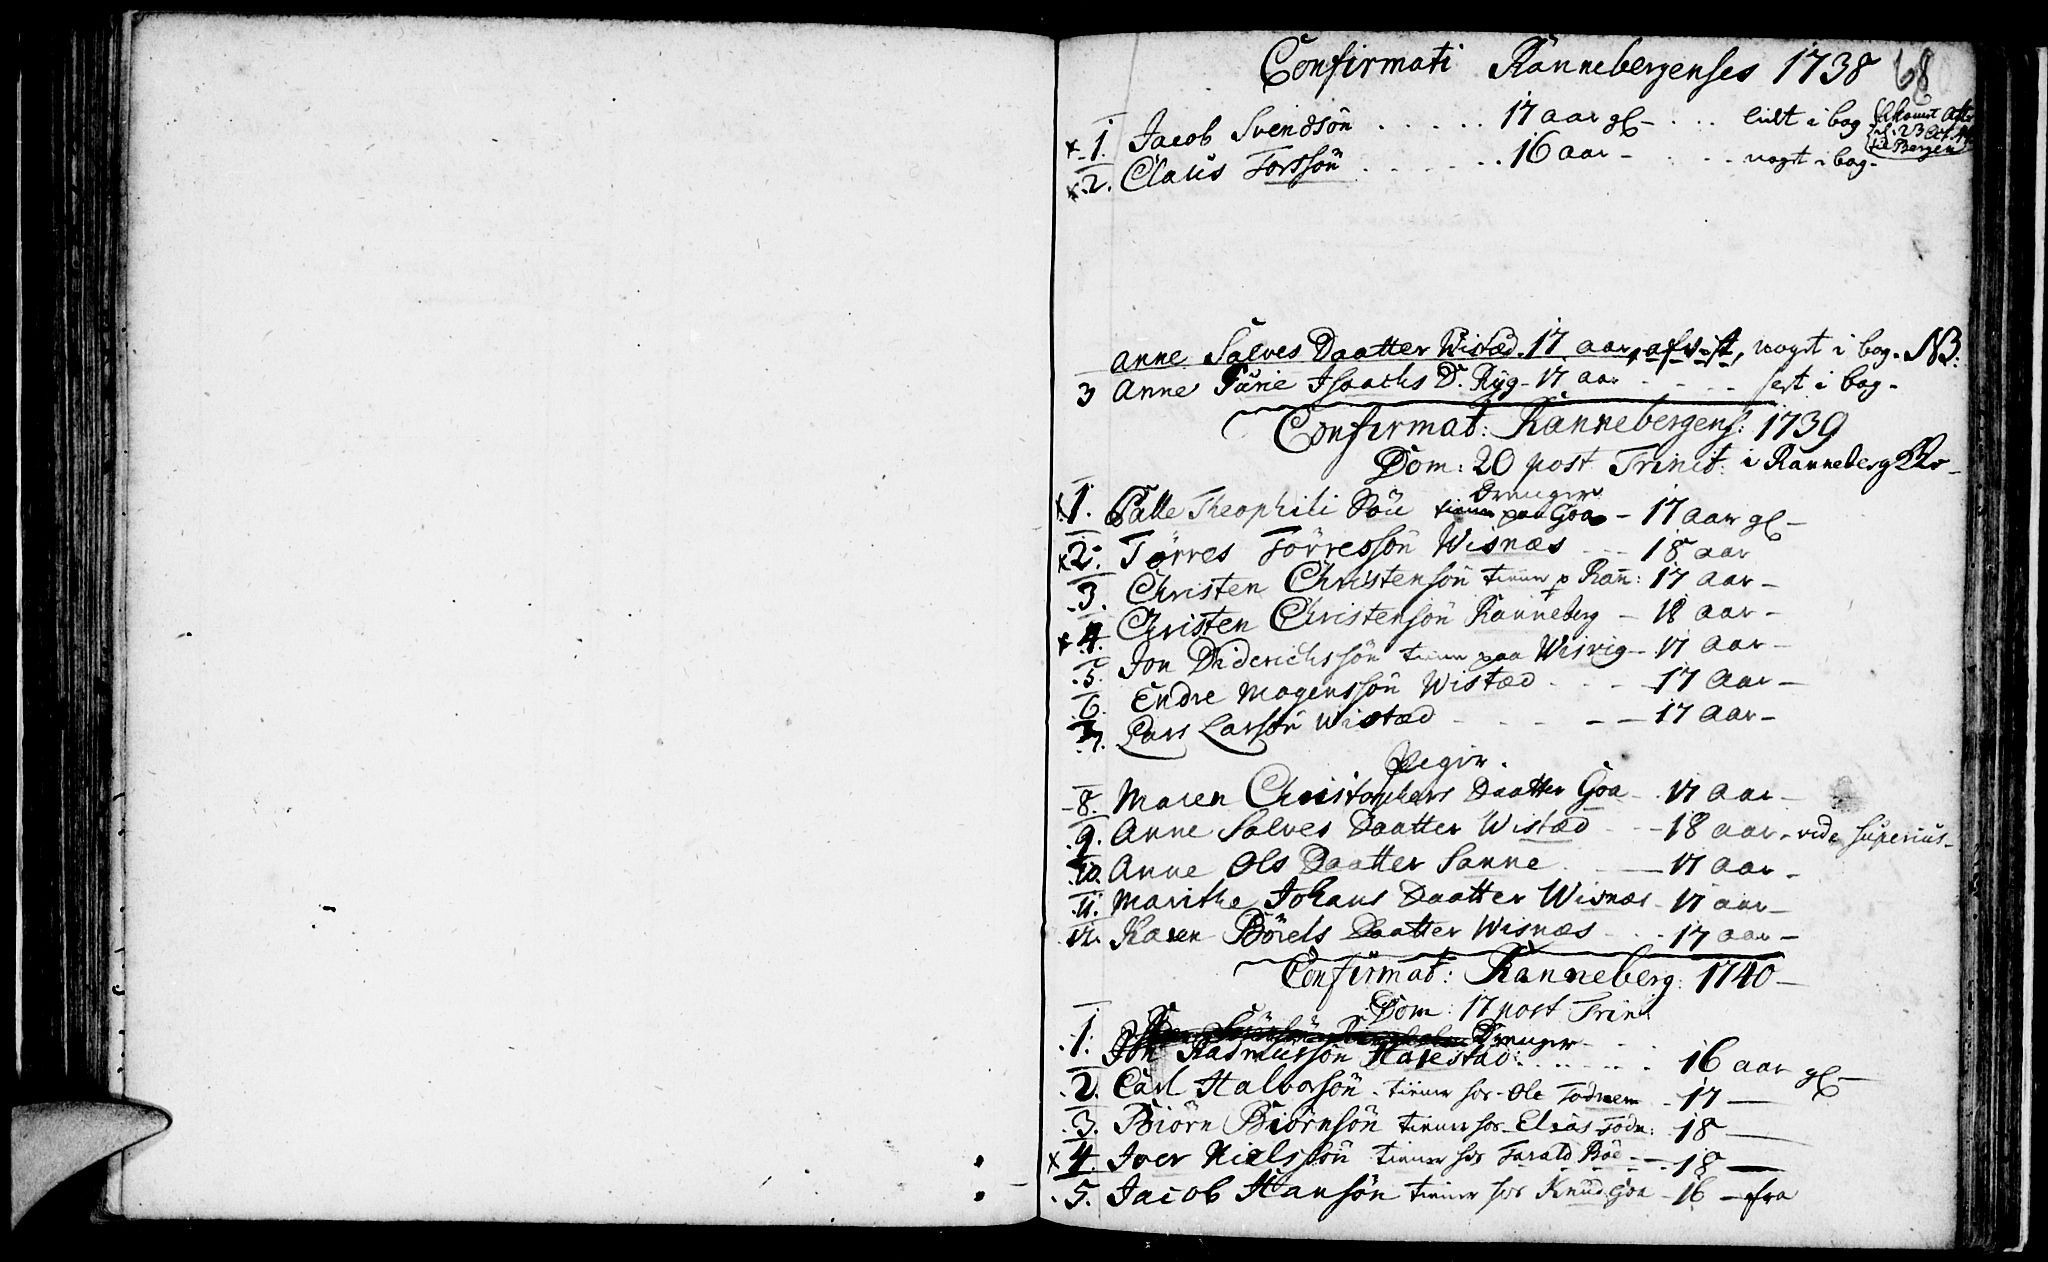 Confirmati Rannebergenses 1738 68
x 1. Jacob Svendsön . . . . . 17 aar gl - . . . lidt i bog
til Bergen
x 2. Claus Torssön . . . . . . 16 aar - . . . . nogt i bog -
Anne Salves Daatter Wistæd. 17 aar, afvist, nogt i bog. NB.
3 Anne Isaachs D. Ryg - 17 aar - - - - i bog -
Confirmat: Rannebergens: 1739
Dom: 20 post Trinit: i Ranneberg
Drenger
x 1. Palle Theophili Sön tiener paa Goa - 17 aar gl -
x 2. Törres Törressön Wisnæs - - - 18 aar
3. Christen Christensön tiener p Ran: 17 aar -
x 4. Christen Christensön Ranneberg - 18 aar -
5. Jon Diderichssön tiener paa Wisvig - 17 aar -
6. Endre Mogenssön Wistæd - - - 17 aar -
7. Lars Larsön Wistæd - - - - - 17 aar -
Pigir.
8. Maren Christophers Daatter Goa - 17 aar -
9. Anne Salves Daatter Wistæd - - - 18 aar - vide superius -
10. Anne Ols Daatter Sanne - - 17 aar -
11. Marithe Johans Daatter Wisnæs - 17 aar -
12. Karen Börels Daatter Wisnæs - - - 17 aar -
Confirmat: Ranneberg: 1740 -
Dom: 17 post Trin:
Drenger
1. Jon Rasmussön Harestad: . . . . . . 16 aar gl -
2. Carl Halvorsön - tiener hos - Ole Todnem - 17 -
3. Biörn Biörnsön tiener hos - Elias Todn: 18 -
x 4. Iver Nielssön tiener hos Tarald Böe - - 18 -
5. Jacob Hansön tiener hos Knud Goa - 16 - fra